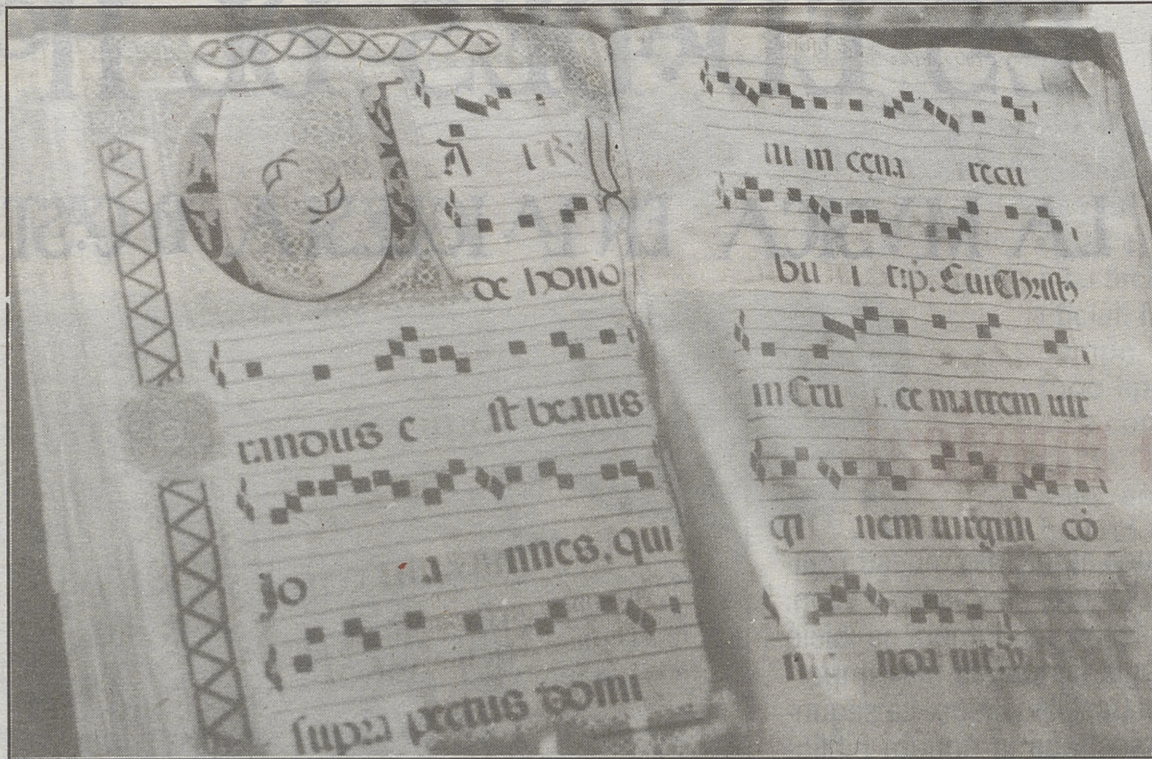 de hono
randus e st beatus
Jo a nnes, qui
supra pectus domi
ni in cena recu
bu i t: p. Cui Christo
in Cru ce matrem uir
gi nem uirgini cō